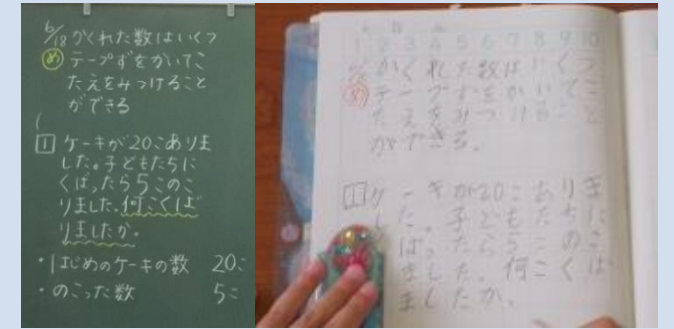 6/18 かくれた数はいくつ
め テープずをかいてこ
たえをみつけること
ができる
1 ケーキが20こありま
した。子どもたちに
くばったら5このこ
りました。何こくば
りましたか。
・はじめのケーキの数 20こ
・のこった数 5こ
1 2 3 4 5 6 7 8 9 10
かくれた数はいくつ
め テープずをかいてこ
たえをみつけること
ができる。
1 ケーキが20こありま
した。子どもたちに
ばったら5このこ
ました。何こくば
ましたか。